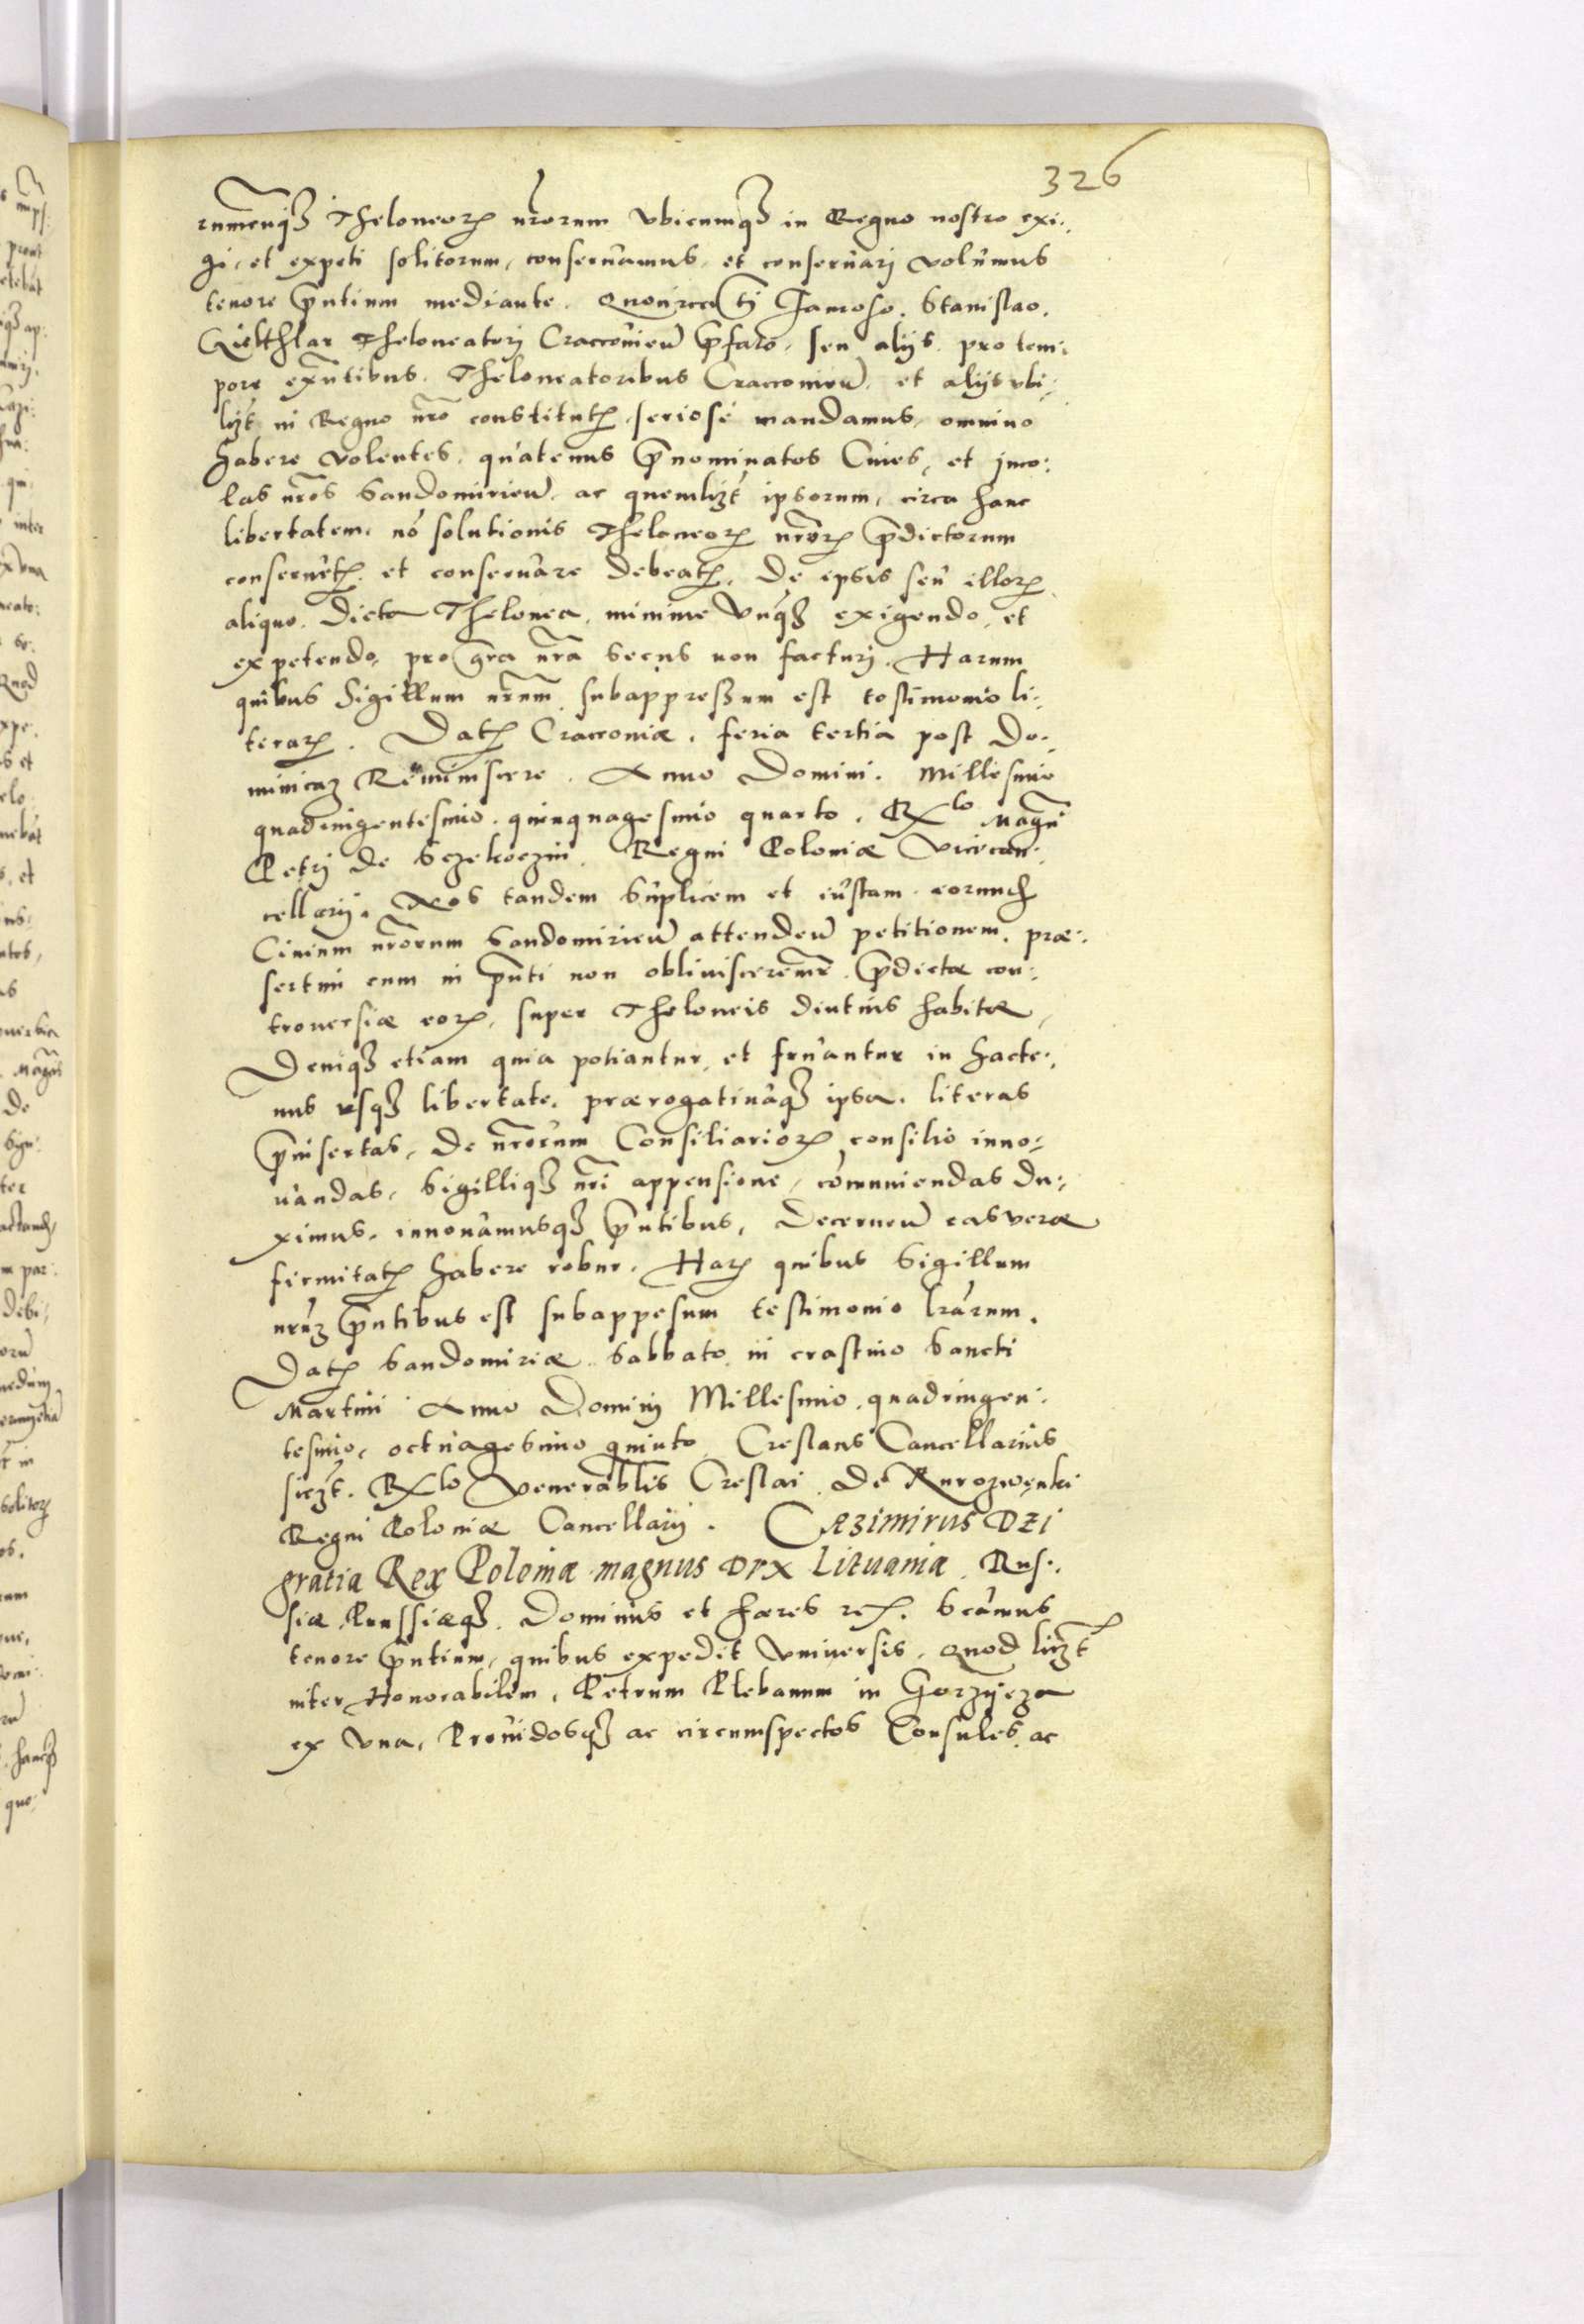 326
rumcunq₃ Theloneoꝝ nr̄orum vbicumq₃ in Regno nostro exi:
gi, et expeti solitorum, conseruamus, et conseruarj volumus
tenore p̄ntium mediante. Quocirca tj Famoso. Stanislao.
Theloneatorj Cracouien̄ p̄faro, seu alijs pro tem:
pore exn̄tibus. Theloneatoribus Cracouien̄, et alijs vbi:
lȝt in Regno nr̄o constitutꝭ seriose mandamus, omnino
habere volentes, quatenus p̄nominatos Ciues, et jnco:
las nr̄os Sandomirien̄ ac quemlȝt ipsorum, circa hanc
libertatem, nō solutionis Theloneoꝝ nr̄oꝝ p̄dictorum
conseruetꝭ et conseruare debeatꝭ, de ipsis seu illoꝝ
aliquo, dicta Thelonea, minime vnq₃ exigendo, et
expetendo, pro gr̄a nr̄a secus non facturj. Harum
quibus Sigillum nr̄um subappressum est testimonio li:
teraꝝ. Datꝭ Cracouiæ, feria tertia post Do:
minicaȝ Reminiscere. Anno Domini. Millesimo
quadringentesimo, quinquagesimo quarto. Rlo Magn̄
Petrj de Sczekoczin. Regni Poloniæ Vicecan:
cellarij. Nos tandem suplicem et iustam eorund
Ciuium nr̄orum Sandomirien̄ attenden̄ petitionem, præ:
sertim cum in p̄nti non obliuisceremr̄ p̄dictæ con:
trouersiæ eoꝝ, super Theloneis diutius habitæ,
Deniq₃ etiam quia potiantur, et fruantur in hacte:
nus vsq₃ libertate, prærogatiuaq₃ ipsa. literas
p̄insertas, de nr̄orum Consiliarioꝝ consilio inno:
uandas, Sigilliq₃ nr̄i appensione, cōmuniendas du:
ximus, innouamusq₃ p̄ntibus, Decernen̄ eas veræ
firmitatꝭ habere robur. Haꝝ quibus Sigillum
nr̄uȝ p̄ntibus est subappesum testimonio lr̄arum.
Datꝭ Sandomiriæ Sabbato in crastino Sancti
Martini Anno Dominj Millesimo, quadringen:
tesimo, octuagesimo quinto Creslaus Cancellarius
Rlo Venerablis Creslai de Kurozwenki
Regni Poloniæ Cancellarij. Cazimirus Dei
gratia Rex Poloniæ magnus Dux Lituaniæ, Rus:
siæ Prussiæq₃ Dominus et hæres reꝭ. Scamus
tenore p̄ntium, quibus expedit vniuersis, Quod licȝt
inter Honorabilem, Petrum Plebanum in Gorzyczа
ex vna, Prouidosq₃ ac circumspectos Consules, ac